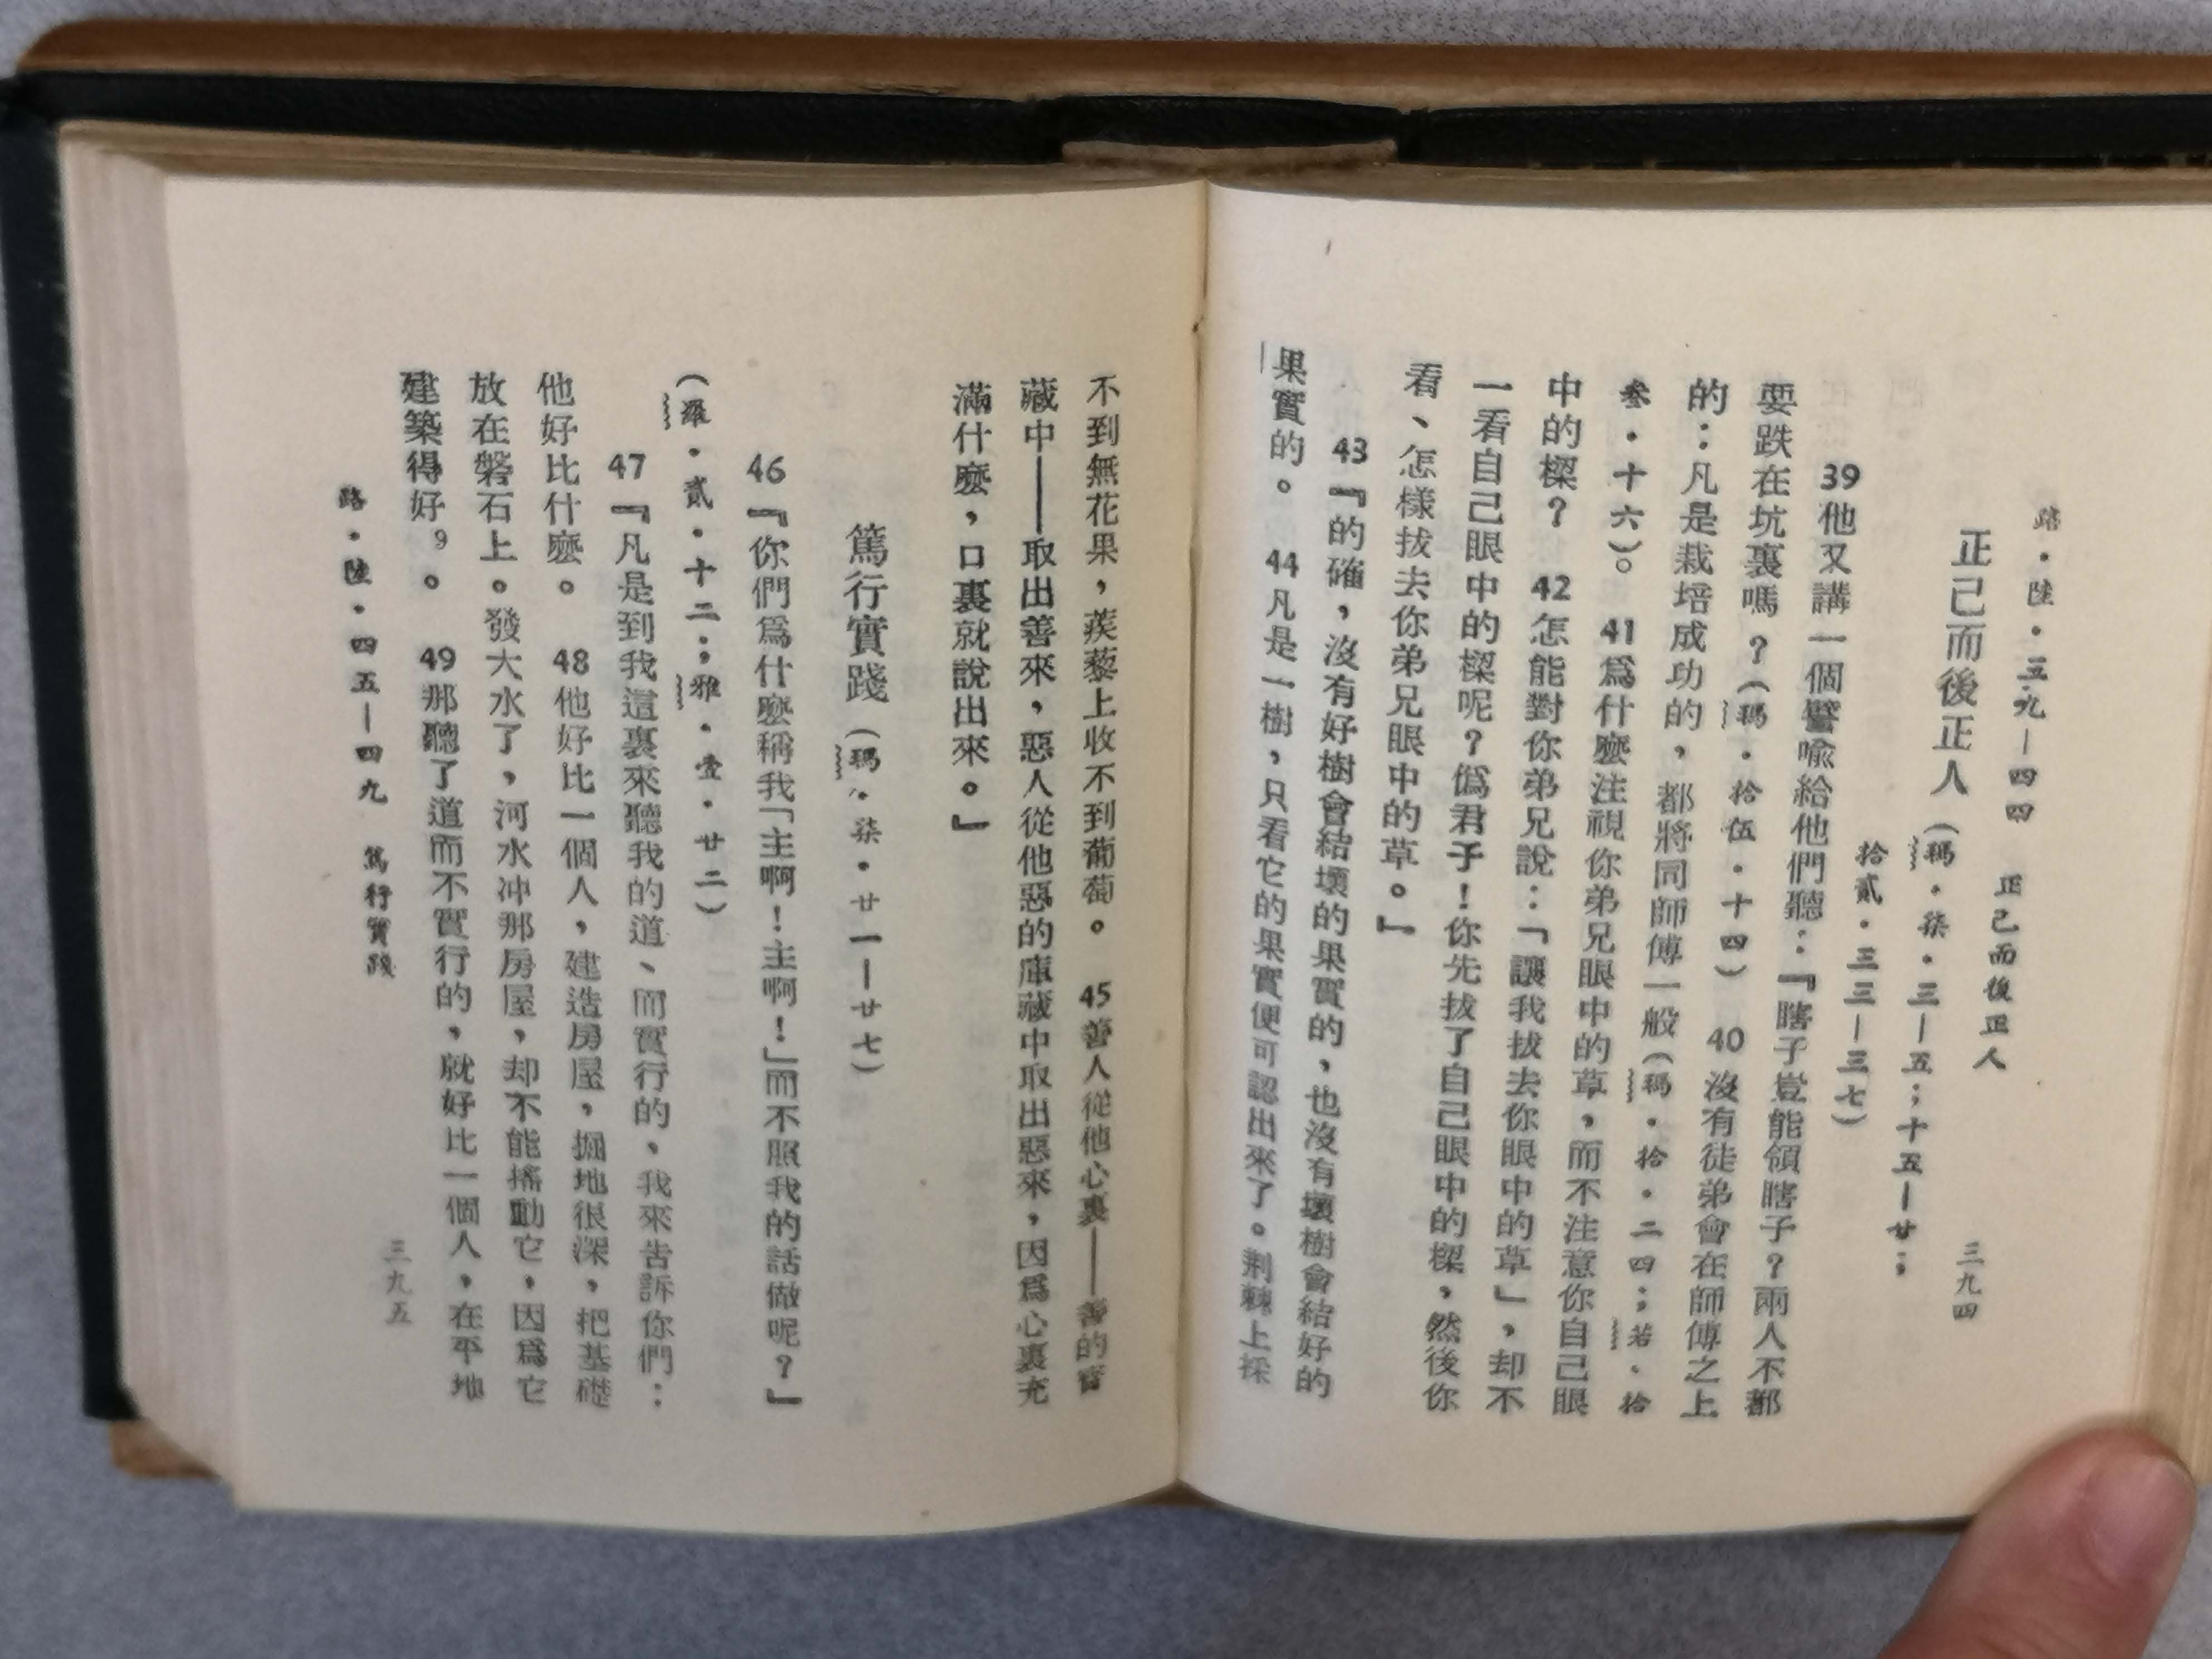 路．陸．三九—四四　正己而後正人　三九四
正己而後正人（瑪．柒．三—五；十五—廿；
拾貳．三三—三七）
39他又講一個譬喻給他們聽：『瞎子豈能領瞎子？兩人不都
要跌在坑裏嗎？（瑪．拾伍．十四）　40沒有徒弟會在師傅之上
的：凡是栽培成功的，都將同師傅一般（瑪．拾．二四；若．拾
叁．十六）。　41爲什麼注視你弟兄眼中的草，而不注意你自己眼
中的樑？　42怎能對你弟兄說：「讓我拔去你眼中的草」，却不
一看自己眼中的樑呢？僞君子！你先拔了自己眼中的樑，然後你
看、怎樣拔去你弟兄眼中的草。』
43『的確，沒有好樹會結壞的果實的，也沒有壞樹會結好的
果實的。　44凡是一樹，只看它的果實便可認出來了。荆棘上採
不到無花果，蒺藜上收不到葡萄。　45善人從他心裏——善的寶
藏中——取出善來，惡人從他惡的庫藏中取出惡來，因爲心裏充
滿什麼，口裏就說出來。』
篤行實踐（瑪．柒．廿一—廿七）
46『你們爲什麼稱我「主啊！主啊！」而不照我的話做呢？』
（羅．貳．十二；雅．壹．廿二）
47『凡是到我這裏來聽我的道、而實行的，我來告訴你們：
他好比什麼。　48他好比一個人，建造房屋，掘地很深，把基礎
放在磐石上。發大水了，河水冲那房屋，却不能搖動它，因爲它
建築得好。9。　49那聽了道而不實行的，就好比一個人，在平地
路．陸．四五—四九　篤行實踐　三九五